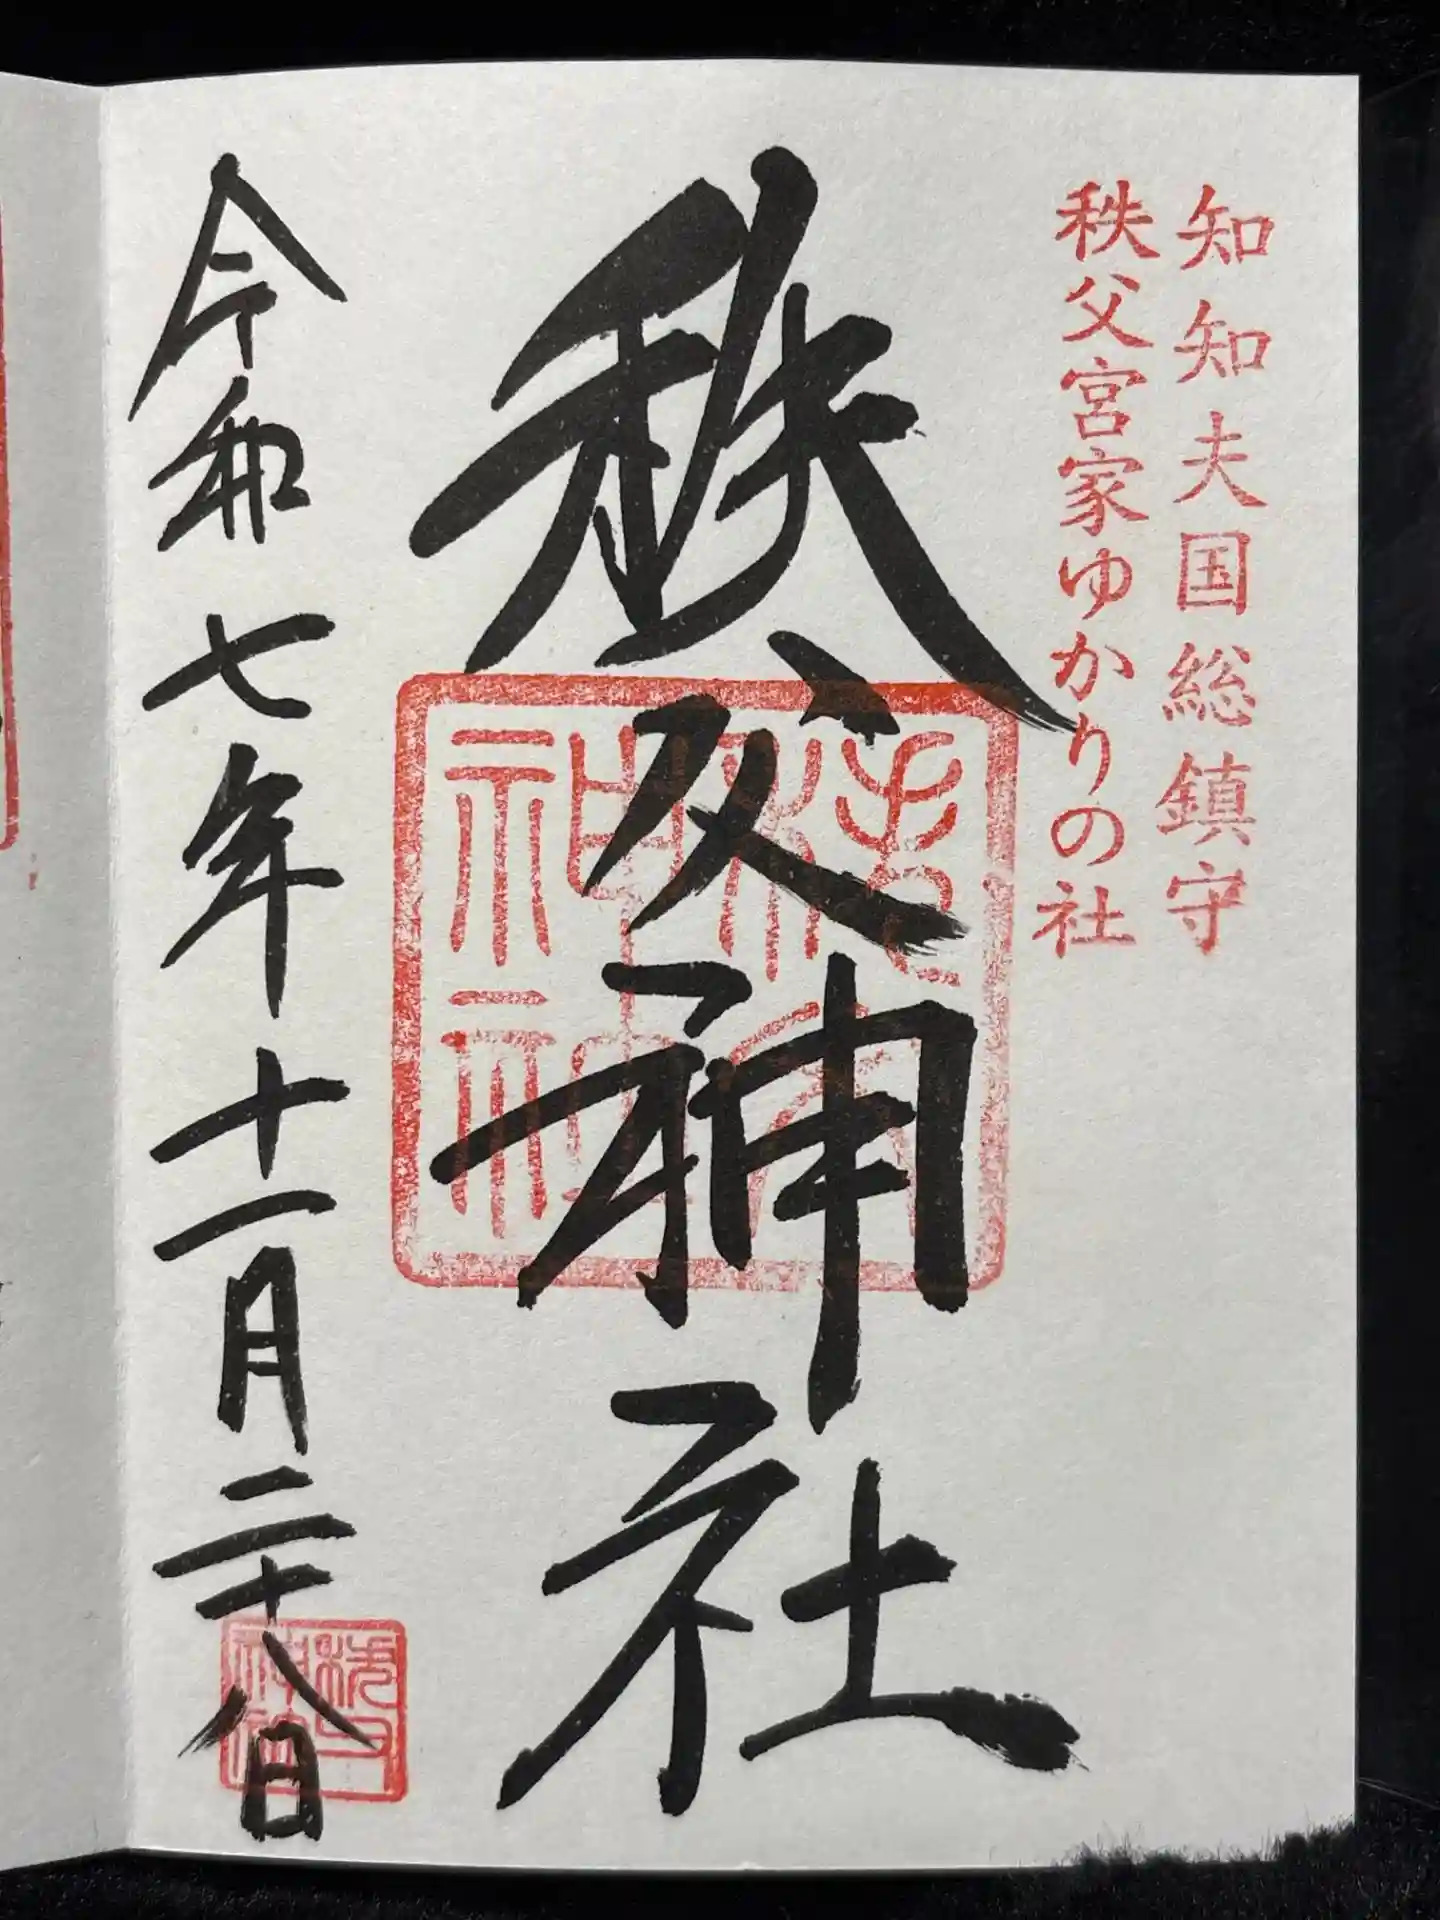 知知夫国総鎮守
秩父宮家ゆかりの社
秩父神社
秩父神社
令和七年十一月二十八日